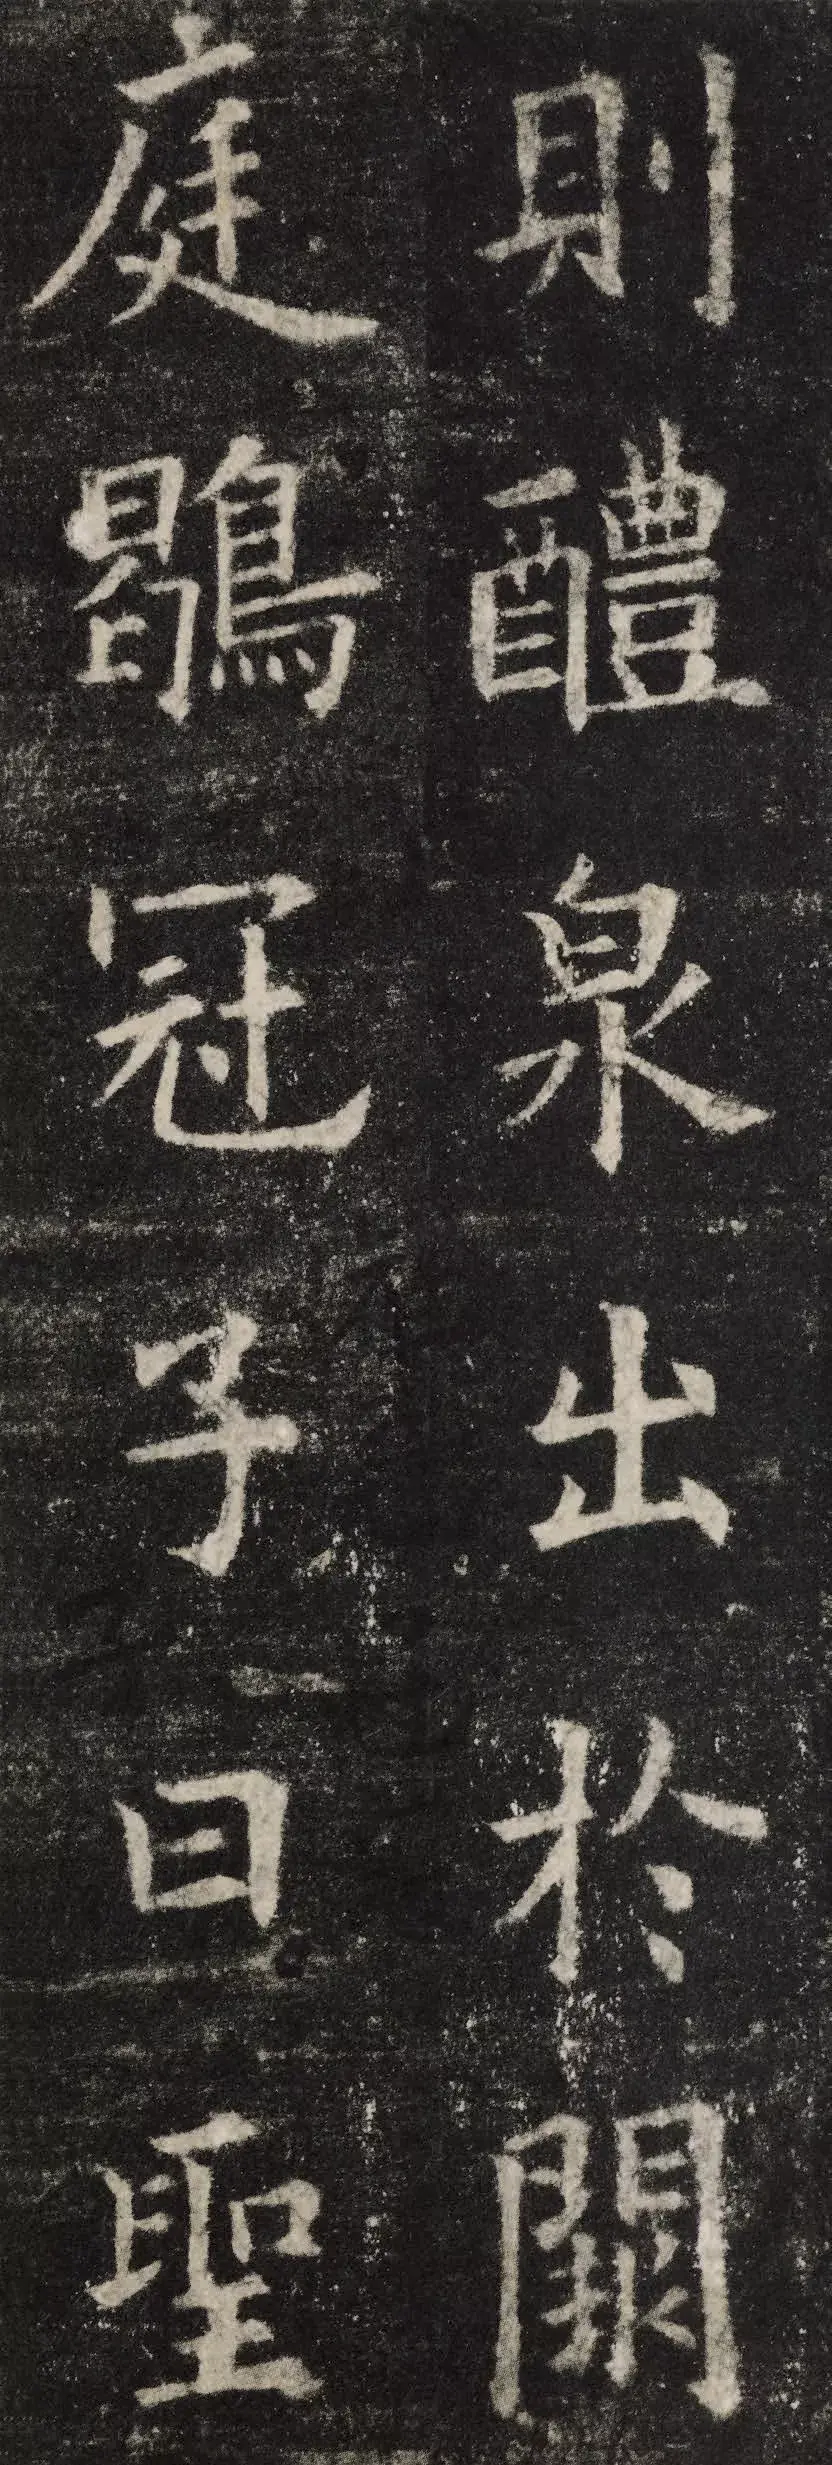 則醴泉出於闕
庭鶡冠子曰聖